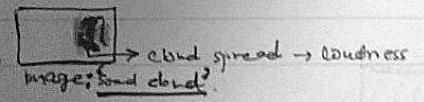 → cloud spread → loudness
image: 'sound cloud'